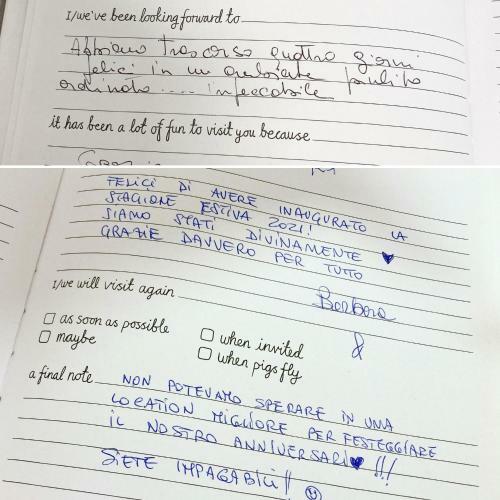 I/we've been looking forward to
Abbiamo trascorso quattro giorni
felici in un ambiente pulito
ordinato .... impeccabile
it has been a lot of fun to visit you because
FELICI DI AVERE INAUGURATO LA
STAGIONE ESTIVA 2021!
SIAMO STATI DIVINAMENTE ♥
GRAZIE DAVVERO PER TUTTO
I/we will visit again
Barbara
&
as soon as possible
maybe
when invited
when pigs fly
a final note NON POTEVAMO SPERARE IN UNA
LOCATION MIGLIORE PER FESTEGGIARE
IL NOSTRO ANNIVERSARI♥ !!!
SIETE IMPAGABILI!!